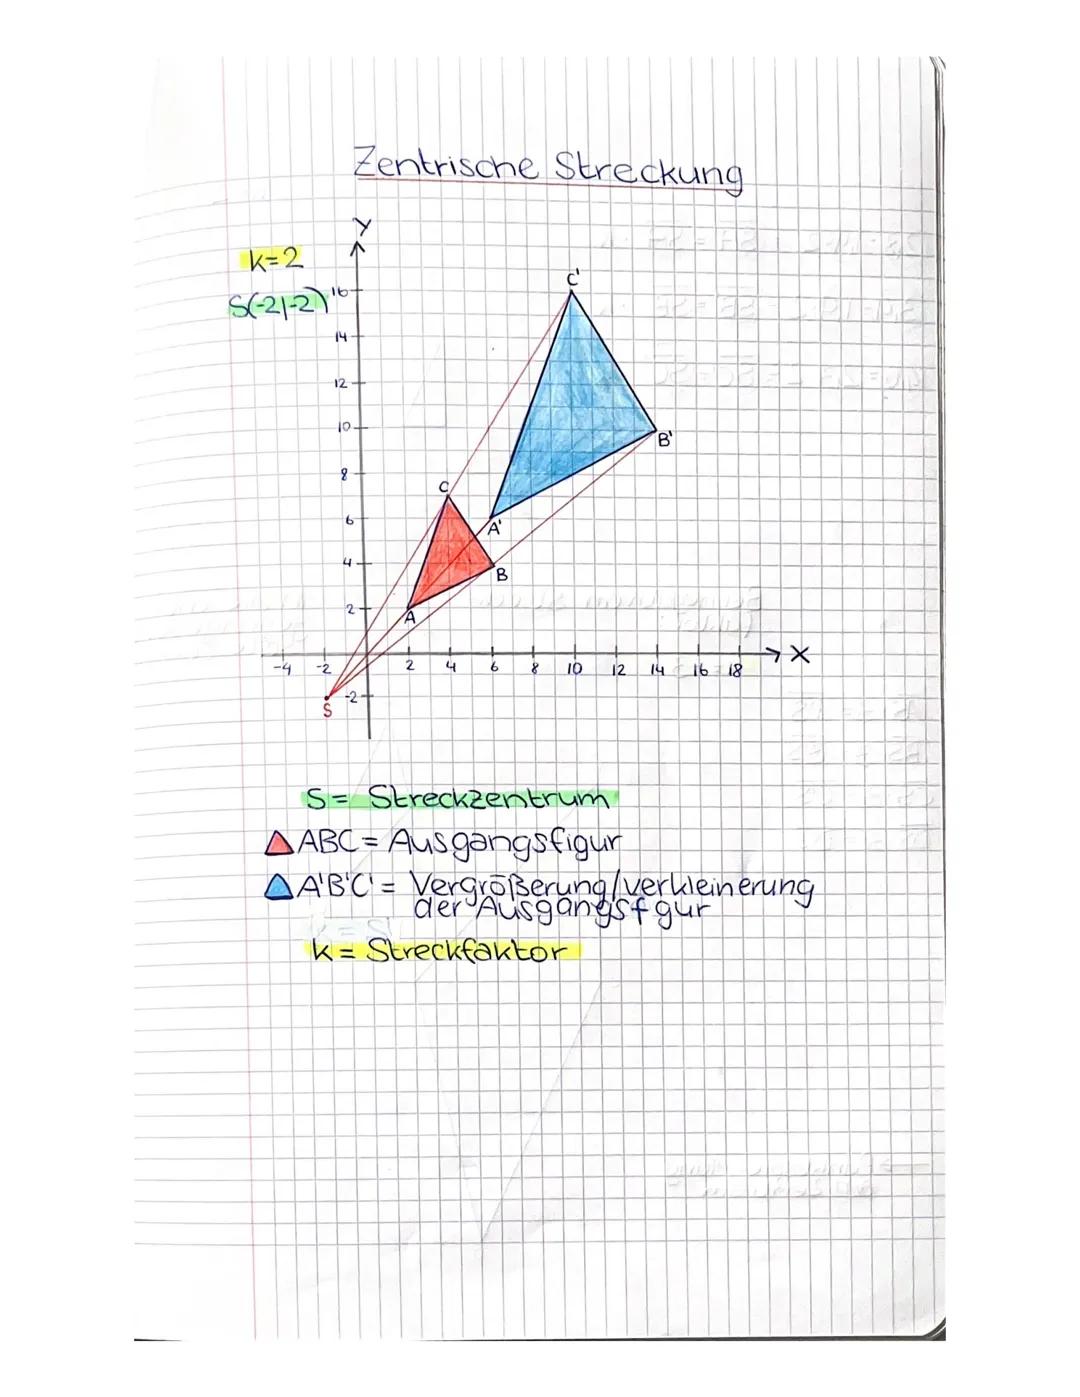 Zentrische Streckung
Y
k=2
S(-2|-2)
16
14
12
10
8
6
4
2
-2
C'
B'
A'
C
B
A
S
-4 -2 2 4 6 8 10 12 14 16 18 X
S= Streckzentrum
ABC= Ausgangsfigur
A'B'C'= Vergrößerung/verkleinerung
der Ausgangsfgur
k= Streckfaktor